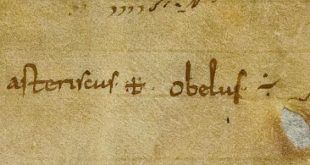 asteriscus ※ obelus ÷